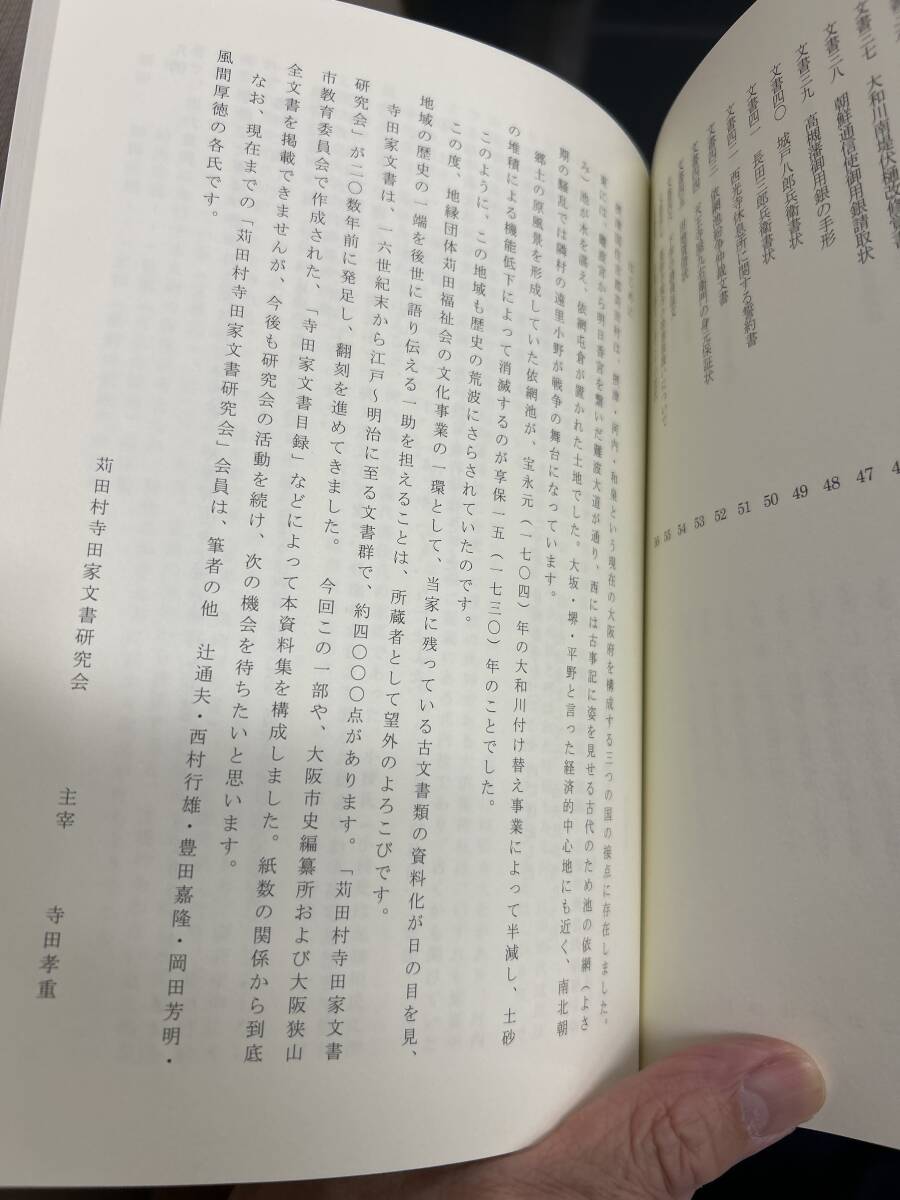 文書三七　大和川南堤伏樋改修覚書
文書三八　朝鮮通信使御用銀請取状　47
文書三九　高槻藩御用銀の手形　48
文書四〇　城戸八郎兵衛書状　49
文書四一　長田三郎兵衛書状　50
文書四二　西光寺休息所に関する誓約書　51
文書四三　依網池紛争仲裁文書　52
53
54
55
はじめに
摂津国住吉郡苅田村は、摂津・河内・和泉という現在の大阪府を構成する三つの国の接点に存在しました。
東には、難波宮から明日香宮を繋いだ難波大道が通り、西には古事記に姿を見せる古代のため池の依網（よさ
み）池が水を湛え、依網屯倉が置かれた土地でした。大坂・堺・平野と言った経済的中心地にも近く、南北朝
期の騒乱では隣村の遠里小野が戦争の舞台になっています。
郷土の原風景を形成していた依網池が、宝永元（一七〇四）年の大和川付け替え事業によって半減し、土砂
の堆積による機能低下によって消滅するのが享保一五（一七三〇）年のことでした。
このように、この地域も歴史の荒波にさらされていたのです。
この度、地縁団体苅田福祉会の文化事業の一環として、当家に残っている古文書類の資料化が日の目を見、
地域の歴史の一端を後世に語り伝える一助を担えることは、所蔵者として望外のよろこびです。
寺田家文書は、一六世紀末から江戸～明治に至る文書群で、約四〇〇〇点があります。「苅田村寺田家文書
研究会」が二〇数年前に発足し、翻刻を進めてきました。　今回この一部や、大阪市史編纂所および大阪狭山
市教育委員会で作成された、「寺田家文書目録」などによって本資料集を構成しました。紙数の関係から到底
全文書を掲載できませんが、今後も研究会の活動を続け、次の機会を待ちたいと思います。
なお、現在までの「苅田村寺田家文書研究会」会員は、筆者の他　辻通夫・西村行雄・豊田嘉隆・岡田芳明・
風間厚徳の各氏です。
苅田村寺田家文書研究会　主宰　寺田孝重